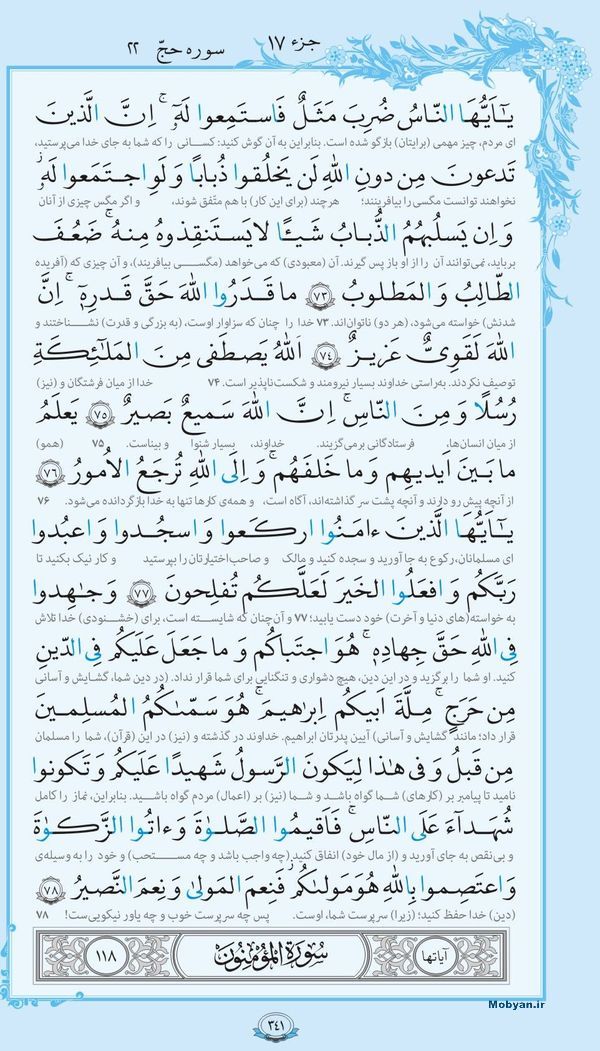 جزء ۱۷
سوره حجّ ۲۲
يـٰٓاَيُّهَا النّاسُ ضُرِبَ مَثَلٌ فَاستَمِعوا لَهُۥٓ ۚ اِنَّ الَّذينَ
ای مردم، چیز مهمی (برایتان) بازگو شده است. بنابراین به آن گوش کنید: کسانی را که شما به جای خدا می‌پرستید،
تَدعونَ مِن دونِ اللهِ لَن يَخلُقوا ذُبابًا وَ لَوِ اجتَمَعوا لَهُۥ ۖ
نخواهند توانست مگسی را بیافرینند؛ هرچند (برای این کار) با هم متّفق شوند، و اگر مگس چیزی از آنان
وَ اِن يَسلُبهُمُ الذُّبابُ شَيـًٔا لا يَستَنقِذوهُ مِنهُ ۚ ضَعُفَ
برباید، نمی‌توانند آن را از او باز پس گیرند. آن (معبودی) که می‌خواهد (مگسی بیافریند)، و آن چیزی که (آفریده
الطّالِبُ وَ المَطلوبُ ﴿۷۳﴾ ما قَدَرُوا اللهَ حَقَّ قَدرِهٓ ۚ اِنَّ
شدنش) خواسته می‌شود، (هر دو) ناتوان‌اند. ۷۳ خدا را چنان که سزاوار اوست، (به بزرگی و قدرت) نشناختند و
اللهَ لَقَوِیٌّ عَزيزٌ ﴿۷۴﴾ اَللهُ يَصطَفی مِنَ المَلٰٓئِكَةِ
توصیف نکردند. به‌راستی خداوند بسیار نیرومند و شکست‌ناپذیر است. ۷۴ خدا از میان فرشتگان و (نیز)
رُسُلًا وَ مِنَ النّاسِ ۚ اِنَّ اللهَ سَميعٌ بَصيرٌ ﴿۷۵﴾ يَعلَمُ
از میان انسان‌ها، فرستادگانی برمی‌گزیند. خداوند، بسیار شنوا و بیناست. ۷۵ (همو)
ما بَينَ اَيديهِم وَ ما خَلفَهُم ۚ وَ اِلَى اللهِ تُرجَعُ الاُمورُ ﴿۷۶﴾
از آنچه پیش رو دارند و آنچه پشت سر گذاشته‌اند، آگاه است، و همه‌ی کارها تنها به خدا بازگردانده می‌شود. ۷۶
يـٰٓاَيُّهَا الَّذينَ ءامَنُوا اركَعوا وَ اسجُدوا وَ اعبُدوا
ای مسلمانان، رکوع به جا آورید و سجده کنید و مالک و صاحب‌اختیارتان را بپرستید و کار نیک بکنید تا
رَبَّكُم وَ افعَلُوا الخَيرَ لَعَلَّكُم تُفلِحونَ ﴿۷۷﴾ وَ جٰهِدوا
به خواسته(های دنیا و آخرت) خود دست یابید؛ ۷۷ و آن‌چنان که شایسته است، برای (خشنودی) خدا تلاش
فِی اللهِ حَقَّ جِهادِهٖ ۚ هُوَ اجتَباكُم وَ ما جَعَلَ عَلَيكُم فِی الدّينِ
کنید. او شما را برگزید و در این دین، هیچ دشواری و تنگنایی برای شما قرار نداد. (در دین شما، گشایش و آسانی
مِن حَرَجٍ ۚ مِلَّةَ اَبيكُم اِبراهيمَ ۚ هُوَ سَمّٰىكُمُ المُسلِمينَ
قرار داد؛ مانند گشایش و آسانی) آیین پدرتان ابراهیم. خداوند در گذشته و (نیز) در این (قرآن)، شما را مسلمان
مِن قَبلُ وَ فی هٰذا لِيَكونَ الرَّسولُ شَهيدًا عَلَيكُم وَ تَكونوا
نامید تا پیامبر بر (کارهای) شما گواه باشد و شما (نیز) بر (اعمال) مردم گواه باشید. بنابراین، نماز را کامل
شُهَدآءَ عَلَى النّاسِ ۚ فَاَقيمُوا الصَّلوٰةَ وَ ءاتُوا الزَّكوٰةَ
و بی‌نقص به جای آورید و (از مال خود) انفاق کنید (چه واجب باشد و چه مستحب) و خود را به وسیله‌ی
وَ اعتَصِموا بِاللهِ هُوَ مَولىٰكُم ۖ فَنِعمَ المَولىٰ وَ نِعمَ النَّصيرُ ﴿۷۸﴾
(دین) خدا حفظ کنید؛ (زیرا) سرپرست شما، اوست. پس چه سرپرست خوب و چه یاور نیکویی‌ست! ۷۸
آیاتها سُورَةُ الْمُؤْمِنُونَ ۱۱۸
Mobyan.ir
۳۴۱